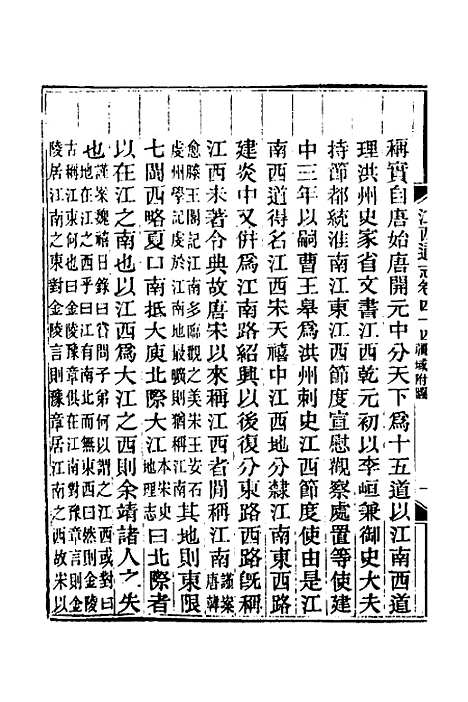 江西通志卷四 疆域附
稱實自唐始唐開元中分天下爲十五道以江南西道
理洪州史家省文書江西乾元初以李峘兼御史大夫
持節都統淮南江東江西節度宣慰觀察處置等使建
中三年以嗣曹王皋爲洪州刺史江西節度使由是江
南西道得名江西宋天禧中江西地分隸江南東西路
建炎中又併爲江南路紹興以後復分東路西路旣稱
江西未著令典故唐宋以來稱江西者間稱江南謹案唐韓
愈滕王閣記江南多臨觀之美宋王安石虔州學記虔於江南地最曠則猶稱江南其地則東限
七閩西略夏口南抵大庾北際大江本宋史地理志曰北際者
以在江之南也以江西爲大江之西則余靖諸人之失
也謹案魏禧日錄曰嘗問子弟何以謂之江西或對曰地在江之西乎曰江有南北而無東西曰然則金陵
古稱江東何也曰金陵豫章俱在江南對豫章言則金陵居江南之東對金陵言則豫章居江南之西故宋以